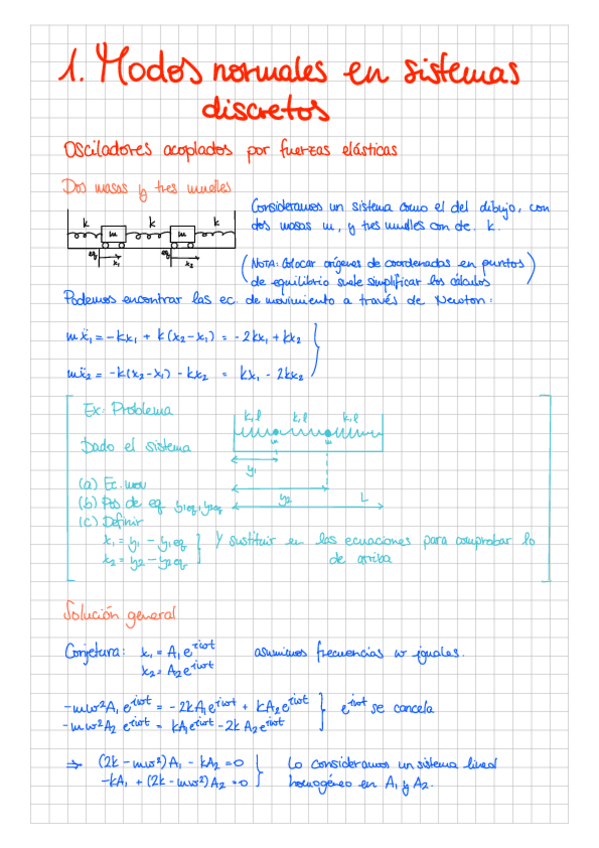 1. Modos normales en sistemas
discretos
Osciladores acoplados por fuerzas elásticas
Dos masas y tres muelles
k k k
m m
eq x₁ eq x₂
Consideramos un sistema como el del dibujo, con
dos masas m, y tres muelles con de. k.
(NOTA: Colocar orígenes de coordenadas en puntos
de equilibrio suele simplificar los cálculos)
Podemos encontrar las ec. de movimiento a través de Newton:
mẍ₁ = -kx₁ + k(x₂-x₁) = -2kx₁ + kx₂
mẍ₂ = -k(x₂-x₁) - kx₂ = kx₁ - 2kx₂
Ex: Problema
Dado el sistema
k,l k,l k,l
m m
y₁
y₂ L
(a) Ec. mov
(b) Pos de eq y₁eq, y₂eq
(c) Definir
x₁ = y₁ - y₁eq
x₂ = y₂ - y₂eq } y sustituir en las ecuaciones para comprobar lo
de arriba
Solución general
Conjetura: x₁ = A₁e^iωt asumimos frecuencias ω iguales.
x₂ = A₂e^iωt
-mω²A₁ e^iωt = -2kA₁e^iωt + kA₂e^iωt
-mω²A₂ e^iωt = kA₁e^iωt - 2kA₂e^iωt } e^iωt se cancela
⇒ (2k - mω²)A₁ - kA₂ = 0 } Lo consideramos un sistema lineal
-kA₁ + (2k - mω²)A₂ = 0 homogéneo en A₁ y A₂.